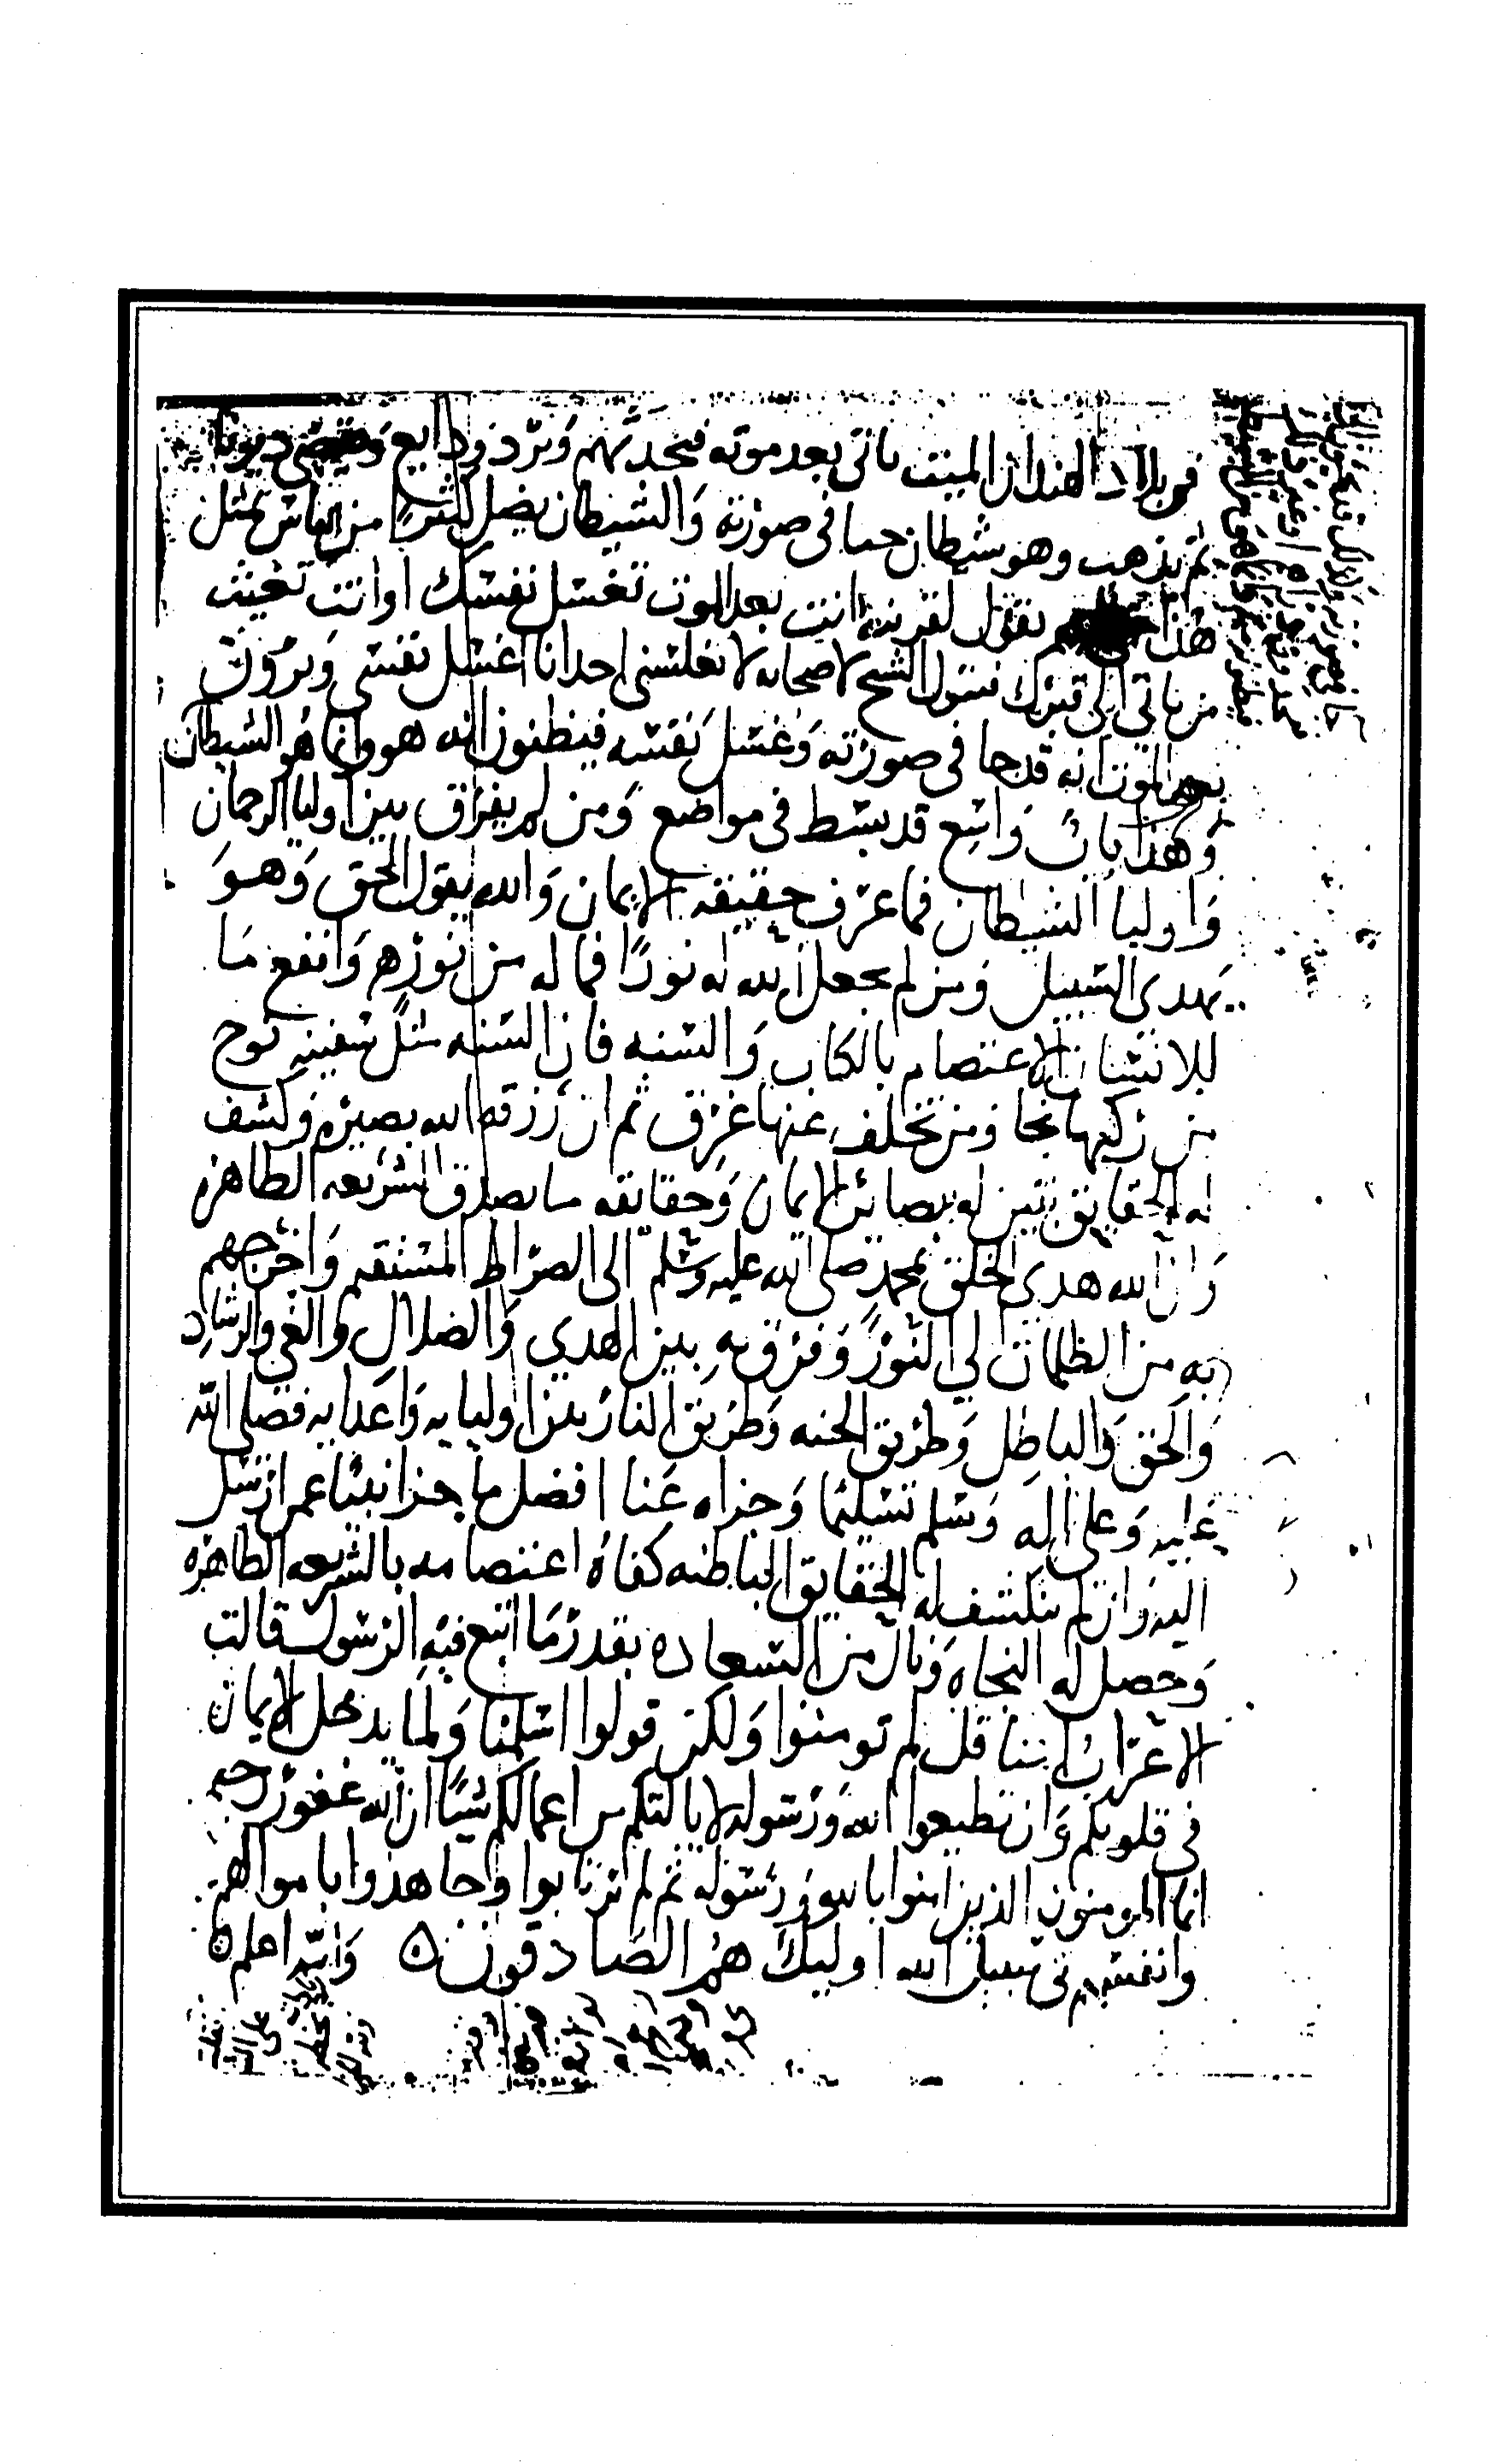 في بلاد الهند ان الميت ياتي بعد موته فيحدثهم ويرد ودايع ويقضي ديونا
ثم يذهب وهو شيطان جا في صورته والشيطان يضل كثيرا من الناس بمثل
هذا يقول لقرينه انت بعد الموت تغسل نفسك او انت تغيث
من ياتي الى قبرك فيقول الشيخ لاصحابه لا يغلسني احد انا اغسل نفسي ويرون
بعد الموت انه قد جا في صورته وغسل نفسه فيظنون انه هو وانما هو الشيطان
وهذا باب واسع قد بسط في مواضع ومن لم يفرق بين اوليا الرحمان
واوليا الشيطان فما عرف حقيقه الايمان والله يقول الحق وهو
يهدي السبيل ومن لم يجعل الله له نورا فما له من نور وانفع ما
للانسان الاعتصام بالكتاب والسنه فان السنه مثل سفينه نوح
من ركبها نجا ومن تخلف عنها غرق ثم ان رزقه الله بصيره وكشف
له الحقايق تبين له ببصائر الايمان وحقايقه ما يصدق الشريعه الظاهره
وان الله هدى الخلق بمحمد صلى الله عليه وسلم الى الصراط المستقيم واخرجهم
به من الظلمات الي النور وفرق به بين الهدي والضلال والغي والرشاد
والحق والباطل وطريق الجنه وطريق النار بين اوليايه واعدايه فصلى الله
عليه وعلى اله وسلم تسليما وجزاه عنا افضل ما جزا نبيا عمن ارسل
اليه وان لم تنكشف له الحقايق الباطنه كفاه اعتصامه بالشريعه الظاهره
وحصل له النجاه ونال من السعاده بقدر ما اتبع فيه الرسول قالت
الاعراب امنا قل لم تومنوا ولكن قولوا اسلمنا ولما يدخل الايمان
في قلوبكم وان تطيعوا الله ورسوله لا يالتكم من اعمالكم شيا ان الله غفور رحيم
انما المومنون الذين امنوا بالله ورسوله ثم لم يرتابوا وجاهدوا باموالهم
وانفسهم في سبيل الله اوليك هم الصادقون والله اعلم